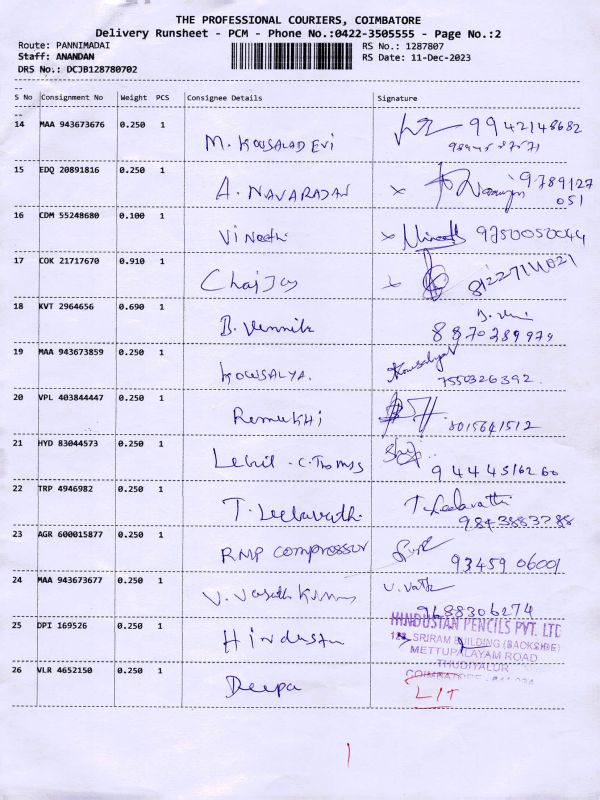 THE PROFESSIONAL COURIERS, COIMBATORE
Delivery Runsheet - PCM - Phone No.:0422-3505555 - Page No.:2
Route: PANNIMADAI RS No.: 1287807
Staff: ANANDAN RS Date: 11-Dec-2023
DRS No.: DCJB128780702
S No Consignment No Weight PCS Consignee Details Signature
14 MAA 943673676 0.250 1 M. KOUSALADEVI 9942148682
15 EDQ 20891816 0.250 1 A. NAVARADAN x 9789127
051
16 CDM 55248680 0.100 1 Vinoth x Vinoth 9750050044
17 COK 21717670 0.910 1 x
18 KVT 2964656 0.690 1 B. Vennila
8870289979
19 MAA 943673859 0.250 1 KOWSALYA. Kowsalya
7550326392.
20 VPL 403844447 0.250 1 8015641512
21 HYD 83044573 0.250 1 C. Thomas
9444516260
22 TRP 4946982 0.250 1 T. Leelavathi T. Leelavathi
9843883788
23 AGR 600015877 0.250 1 RMP compressor
93459 06001
24 MAA 943673677 0.250 1 V. Vasanth Kumar
9688306274
25 DPI 169526 0.250 1 Hindustan HINDUSTAN PENCILS PVT. LTD
SRIRAM BUILDING (BACKSIDE)
METTUPALAYAM ROAD
THUDIYALUR
COIMBATORE
26 VLR 4652150 0.250 1 Deepa LIT